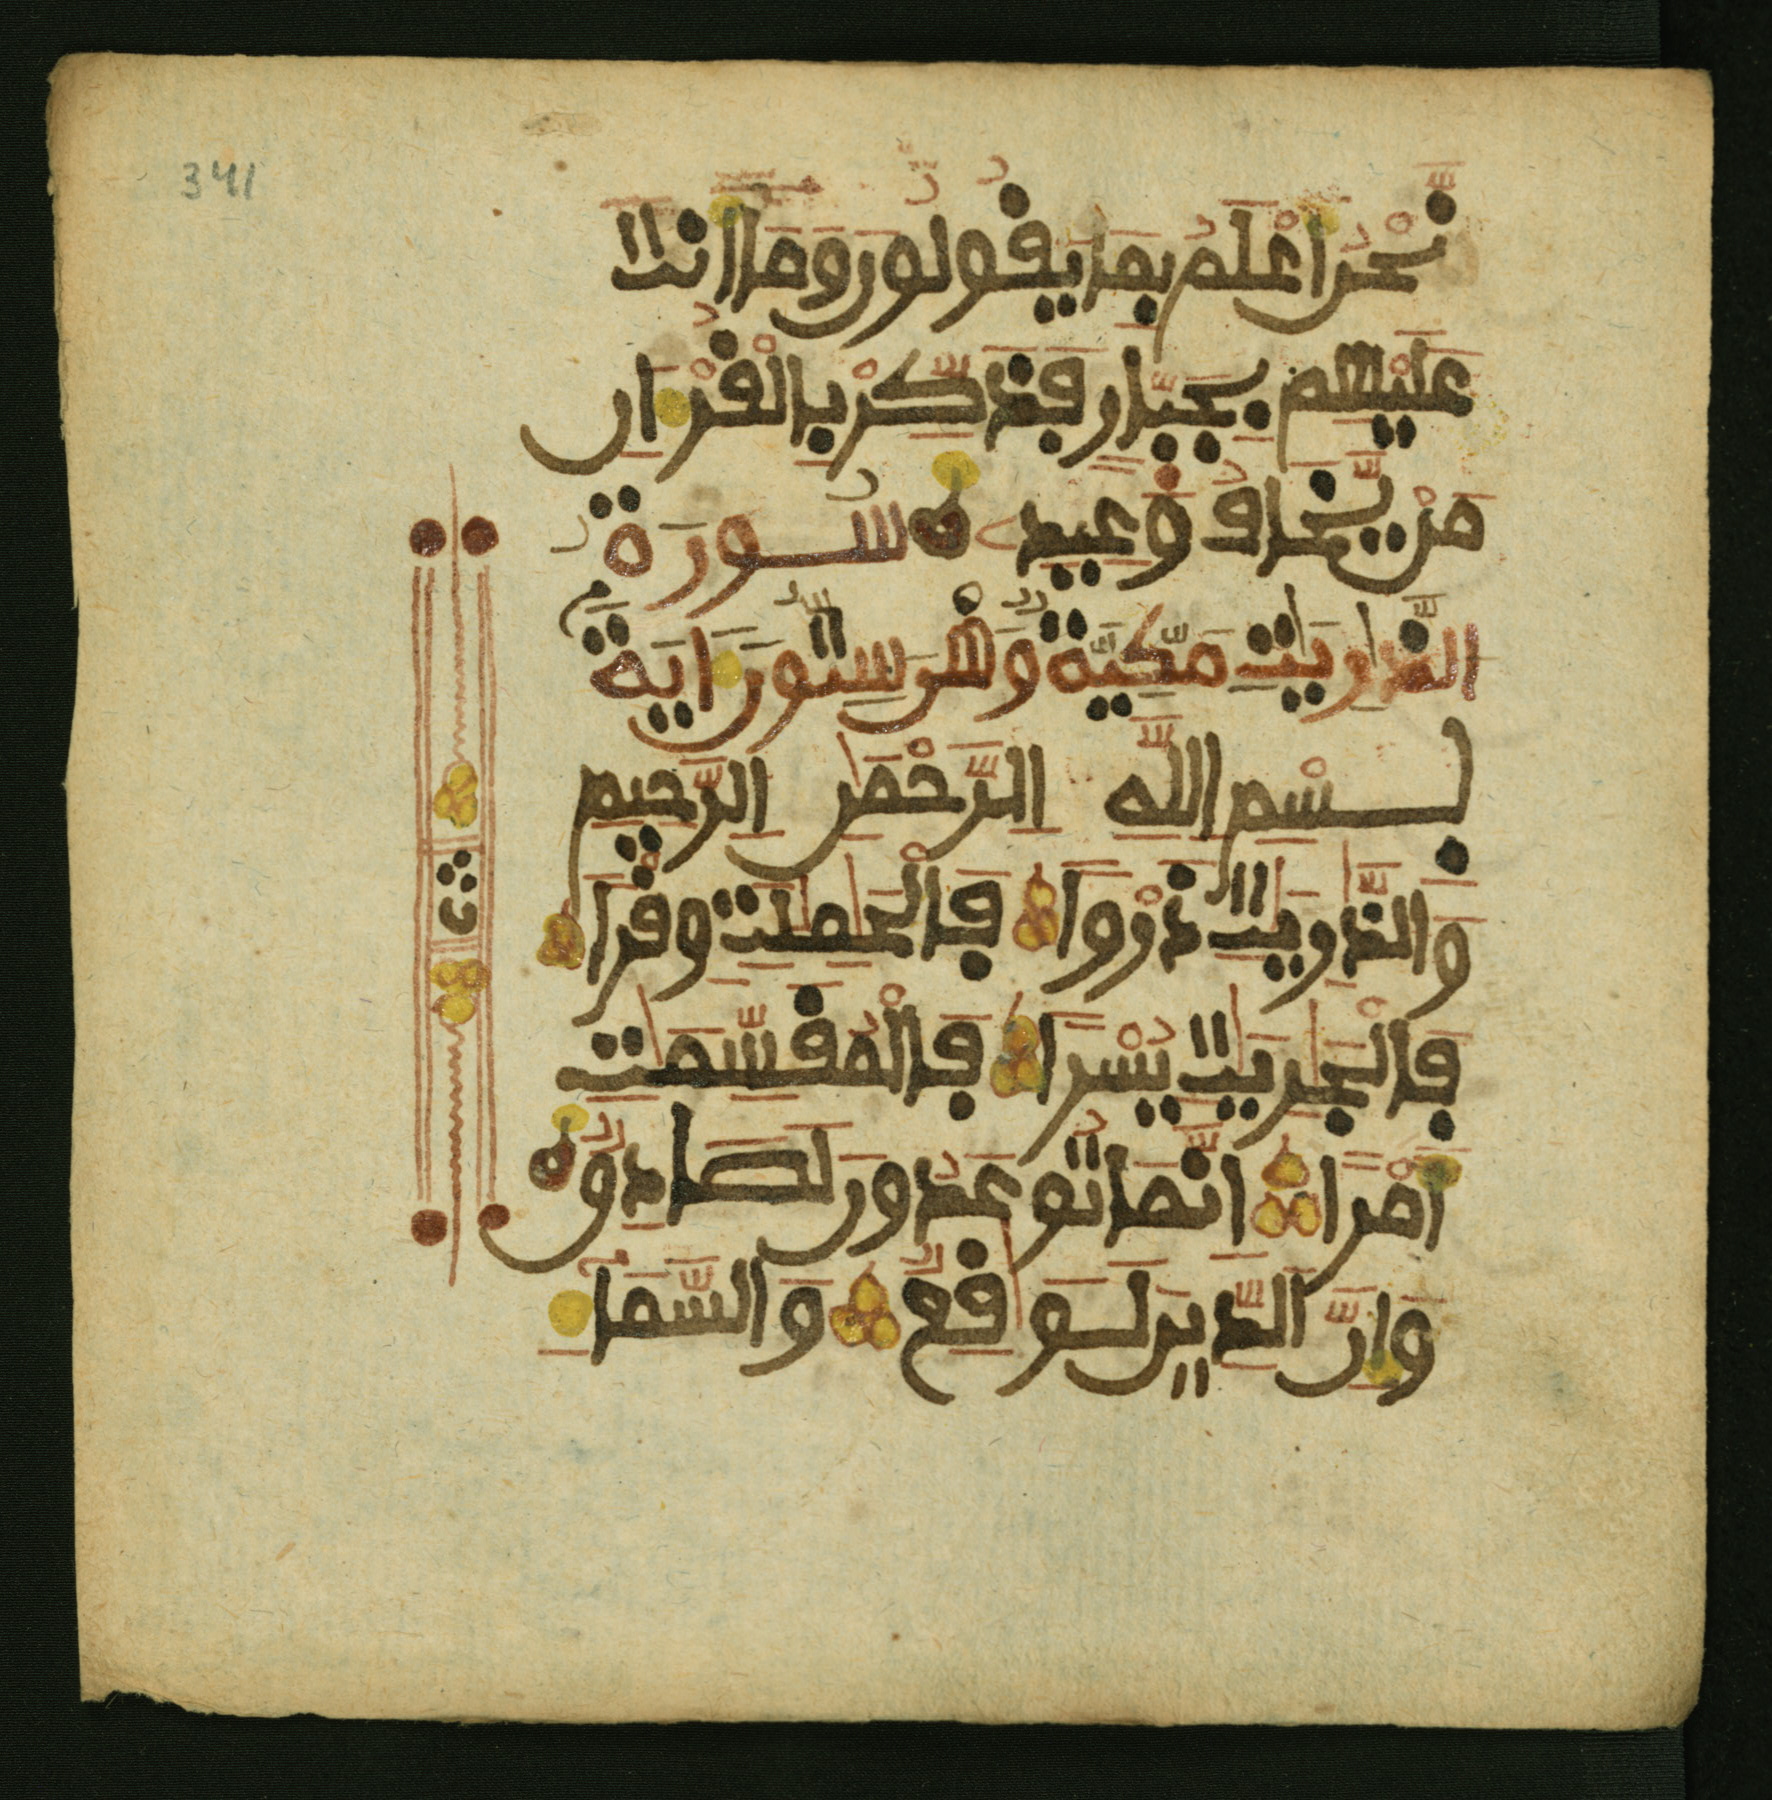 341
نَحْنُ أَعْلَمُ بِمَا يَقُولُونَ وَمَا أَنتَ
عَلَيْهِم بِجَبَّارٍ فَذَكِّرْ بِالْقُرْءَانِ
مَنْ يَّخَافُ وَعِيدِ سُورَةُ
الذَّارِيَٰتِ مَكِّيَّةٌ وَهْيَ سِتُّونَ ءَايَةً
بِسْمِ اللَّهِ الرَّحْمَٰنِ الرَّحِيمِ
وَالذَّٰرِيَٰتِ ذَرْوًا فَالْحَٰمِلَٰتِ وِقْرًا
فَالْجَٰرِيَٰتِ يُسْرًا فَالْمُقَسِّمَٰتِ
أَمْرًا إِنَّمَا تُوعَدُونَ لَصَادِقٌ
وَإِنَّ الدِّينَ لَوَٰقِعٌ وَالسَّمَآءِ